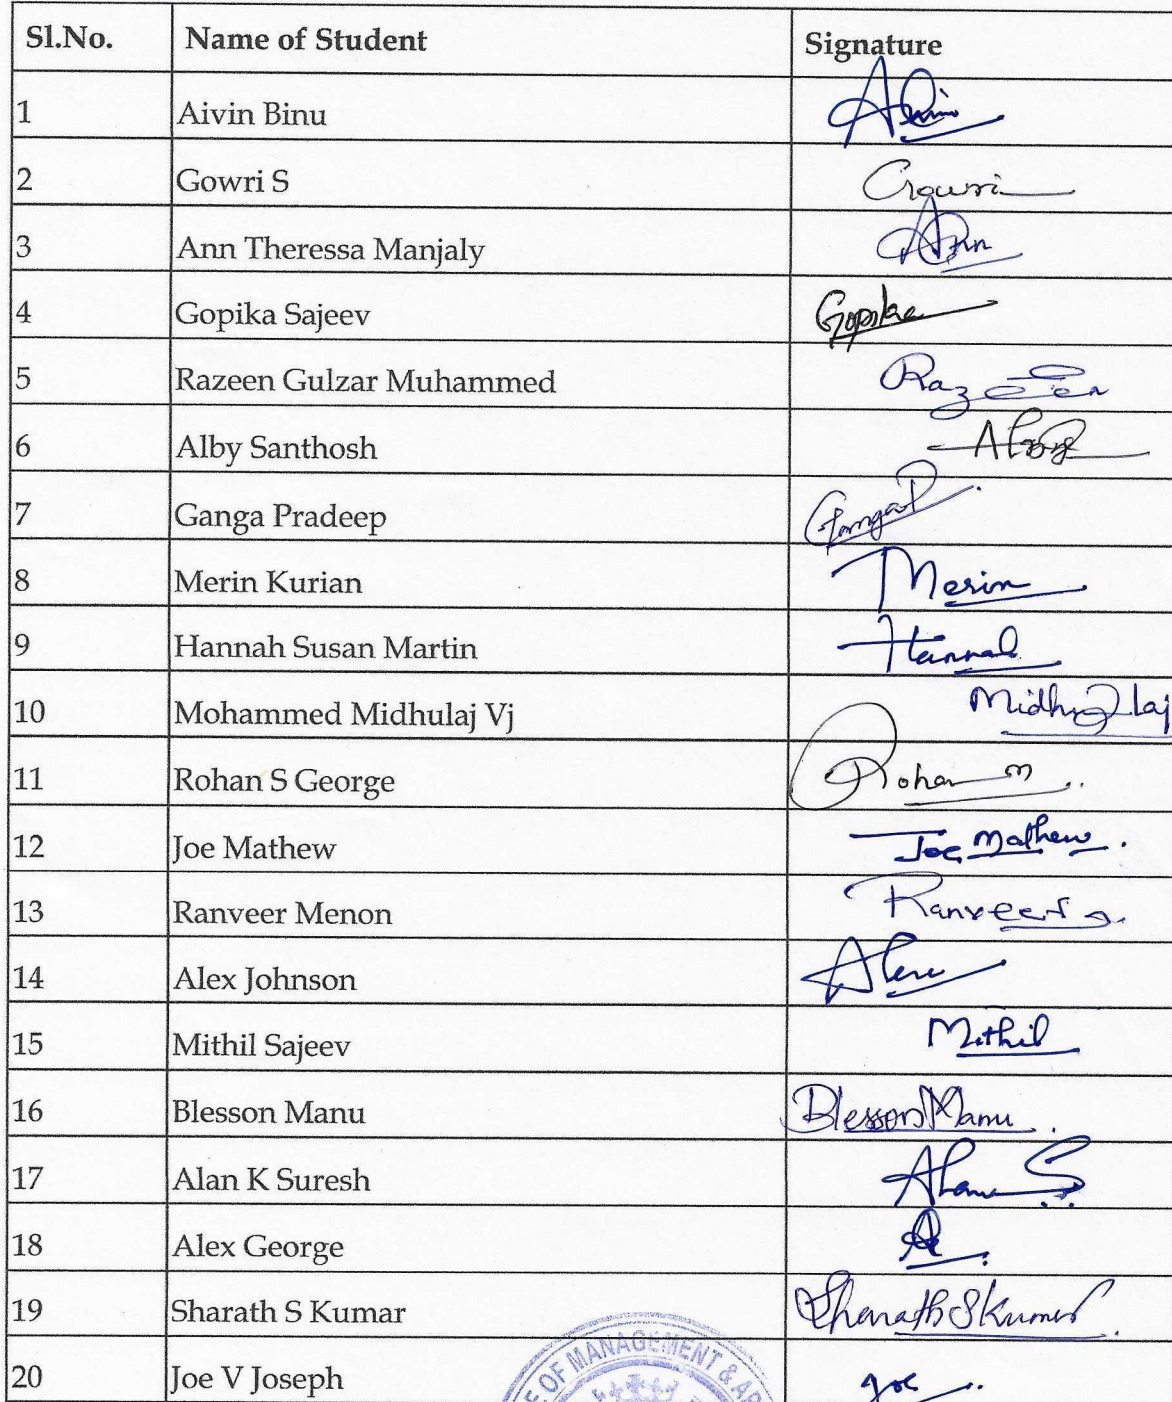 Sl.No. Name of Student Signature
1 Aivin Binu
2 Gowri S Gowri
3 Ann Theressa Manjaly Ann
4 Gopika Sajeev Gopika
5 Razeen Gulzar Muhammed Razeen
6 Alby Santhosh Alby
7 Ganga Pradeep Ganga P
8 Merin Kurian Merin
9 Hannah Susan Martin Hannah
10 Mohammed Midhulaj Vj Midhulaj
11 Rohan S George Rohan
12 Joe Mathew Joe Mathew
13 Ranveer Menon Ranveer
14 Alex Johnson Alex
15 Mithil Sajeev Mithil
16 Blesson Manu Blesson Manu
17 Alan K Suresh Alan S
18 Alex George
19 Sharath S Kumar Sharath S Kumar
20 Joe V Joseph Joe
OF MANAGEMENT &